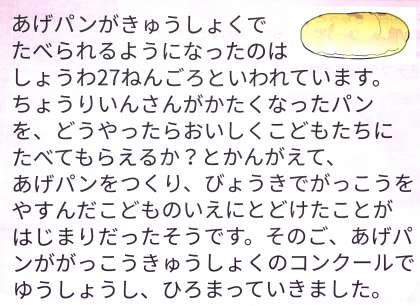 あげパンがきゅうしょくで
たべられるようになったのは
しょうわ27ねんごろといわれています。
ちょうりいんさんがかたくなったパン
を、どうやったらおいしくこどもたちに
たべてもらえるか？とかんがえて、
あげパンをつくり、びょうきでがっこうを
やすんだこどものいえにとどけたことが
はじまりだったそうです。そのご、あげパ
ンががっこうきゅうしょくのコンクールで
ゆうしょうし、ひろまっていきました。